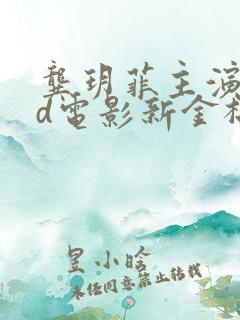 龚玥菲主演
d电影新金
星小晗
未经同意禁止转载